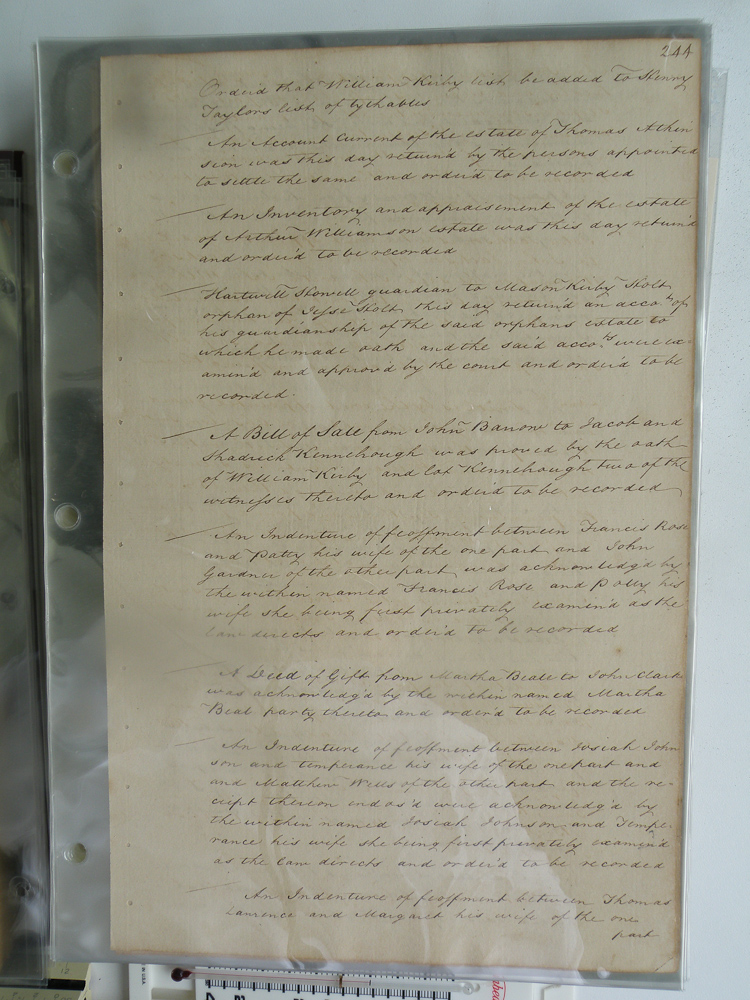 244
Ordeid that William Kirby list be added to Henry
Taylors list of tythables
An Account Current of the estate of Thomas Atkin
sion was this day return'd by the persons appointed
to settle the same and order'd to be recorded
An Inventory and appraisement of the estate
of Arthur Williamson estate was this day return'd
and order'd to be recorded
Hartwell Howell guardian to Mason Kirby Holt
orphan of Jesse Holt this day return'd an acco.ts of
his guardianship of the said orphans estate to
which he made oath and the said acco.ts were ex-
amin'd and approv'd by the court and order'd to be
recorded.
A Bill of Sale from John Barrow to Jacob and
Shadrick Kennehough was proved by the oath
of William Kirby and Lot Kennehough two of the
witnesses thereto and order'd to be recorded
An Indenture of feoffment between Francis Rose
and Patty his wife of the one part and John
Gardner of the other part was acknowledg'd by
the within named Francis Rose and Patty his
wife she being first privately examin'd as the
law directs and order'd to be recorded
A Deed of Gift from Martha Beale to John Clark
was acknowledg'd by the within named Martha
Beal party thereto and order'd to be recorded
An Indenture of feoffment between Josiah John
son and temperance his wife of the one part and
and Matthew Wills of the other part and the re-
ceipt thereon indos'd were acknowledg'd by
the within named Josiah Johnson and Tempe-
rance his wife she being first privately examin'd
as the law directs and order'd to be recorded
An Indenture of feoffment between Thomas
Laurence and Margaret his wife of the one
part